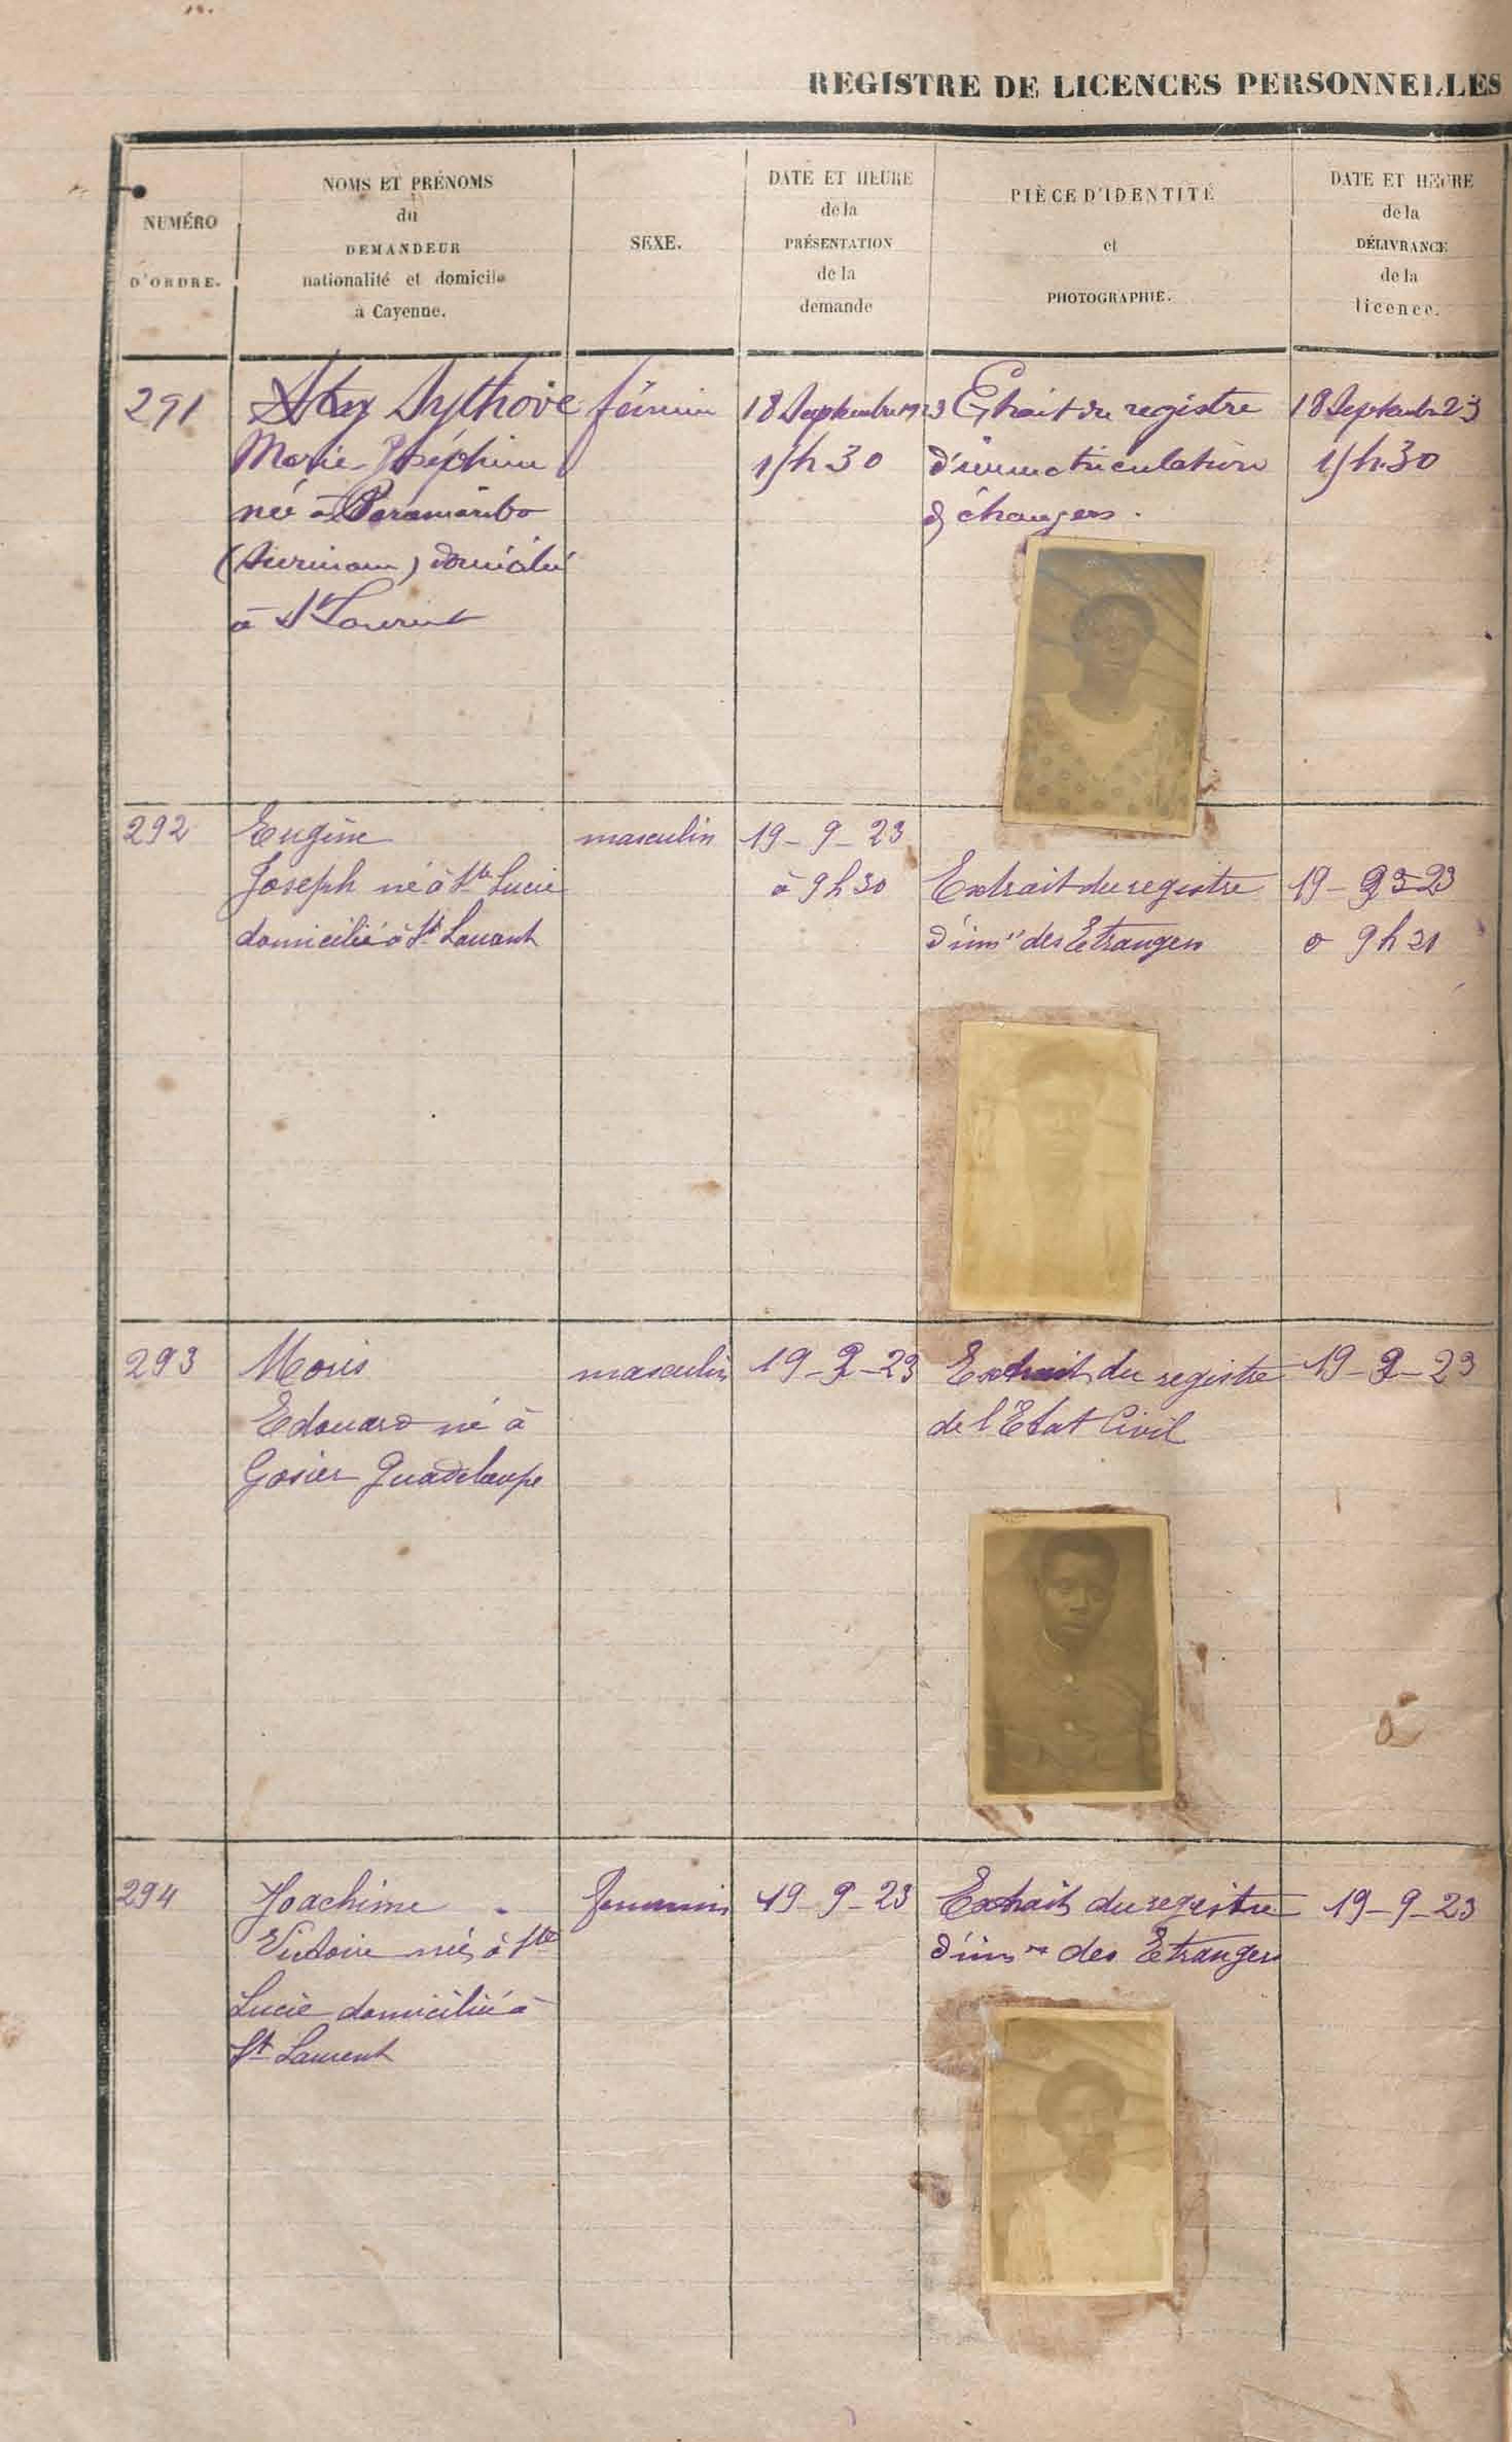 REGISTRE DE LICENCES PERSONNELLES
NUMÉRO
D'ORDRE.
NOMS ET PRÉNOMS
du
DEMANDEUR
nationalité et domicile
à Cayenne.
SEXE.
DATE ET HEURE
de la
PRÉSENTATION
de la
demande
PIÈCE D'IDENTITÉ
et
PHOTOGRAPHIE.
DATE ET HEURE
de la
DÉLIVRANCE
de la
licence.
291
Sythove
Marie Joséphine
née à Paramaribo
(Surinam) domicilié
à St Laurent
féminin
18 Septembre 1923
15h30
Extrait du registre
d'immatriculation
d'étrangers.
18 Septembre 23
15h.30
292
Eugène
Joseph né à Ste Lucie
domicilié à St Laurent
masculin
19-9-23
à 9h30
Extrait du registre
d'imm des Etrangers
19-9-23
9h31
293
Moris
Edouard né à
Gosier Guadeloupe
masculin
19-9-23
Extrait du registre
de l'Etat Civil
19-9-23
294
Joachime
Victoire née à Ste
Lucie domiciliée à
St Laurent
feminin
19-9-23
Extrait du registre
d'imm des Etrangers
19-9-23